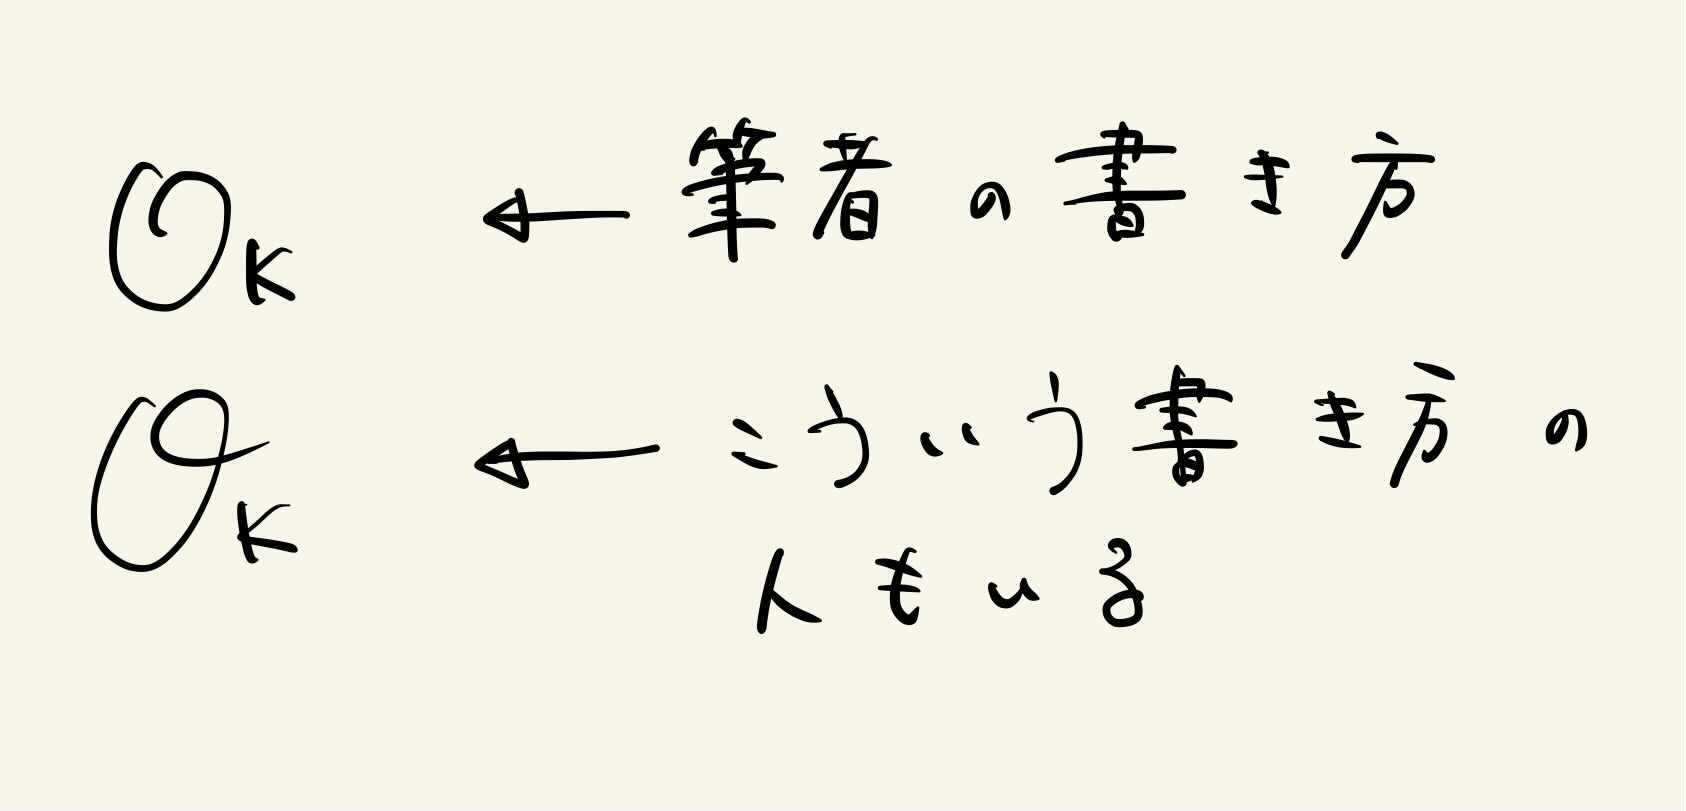 𝒪K ← 筆者の書き方
𝒪K ← こういう書き方の
人もいる